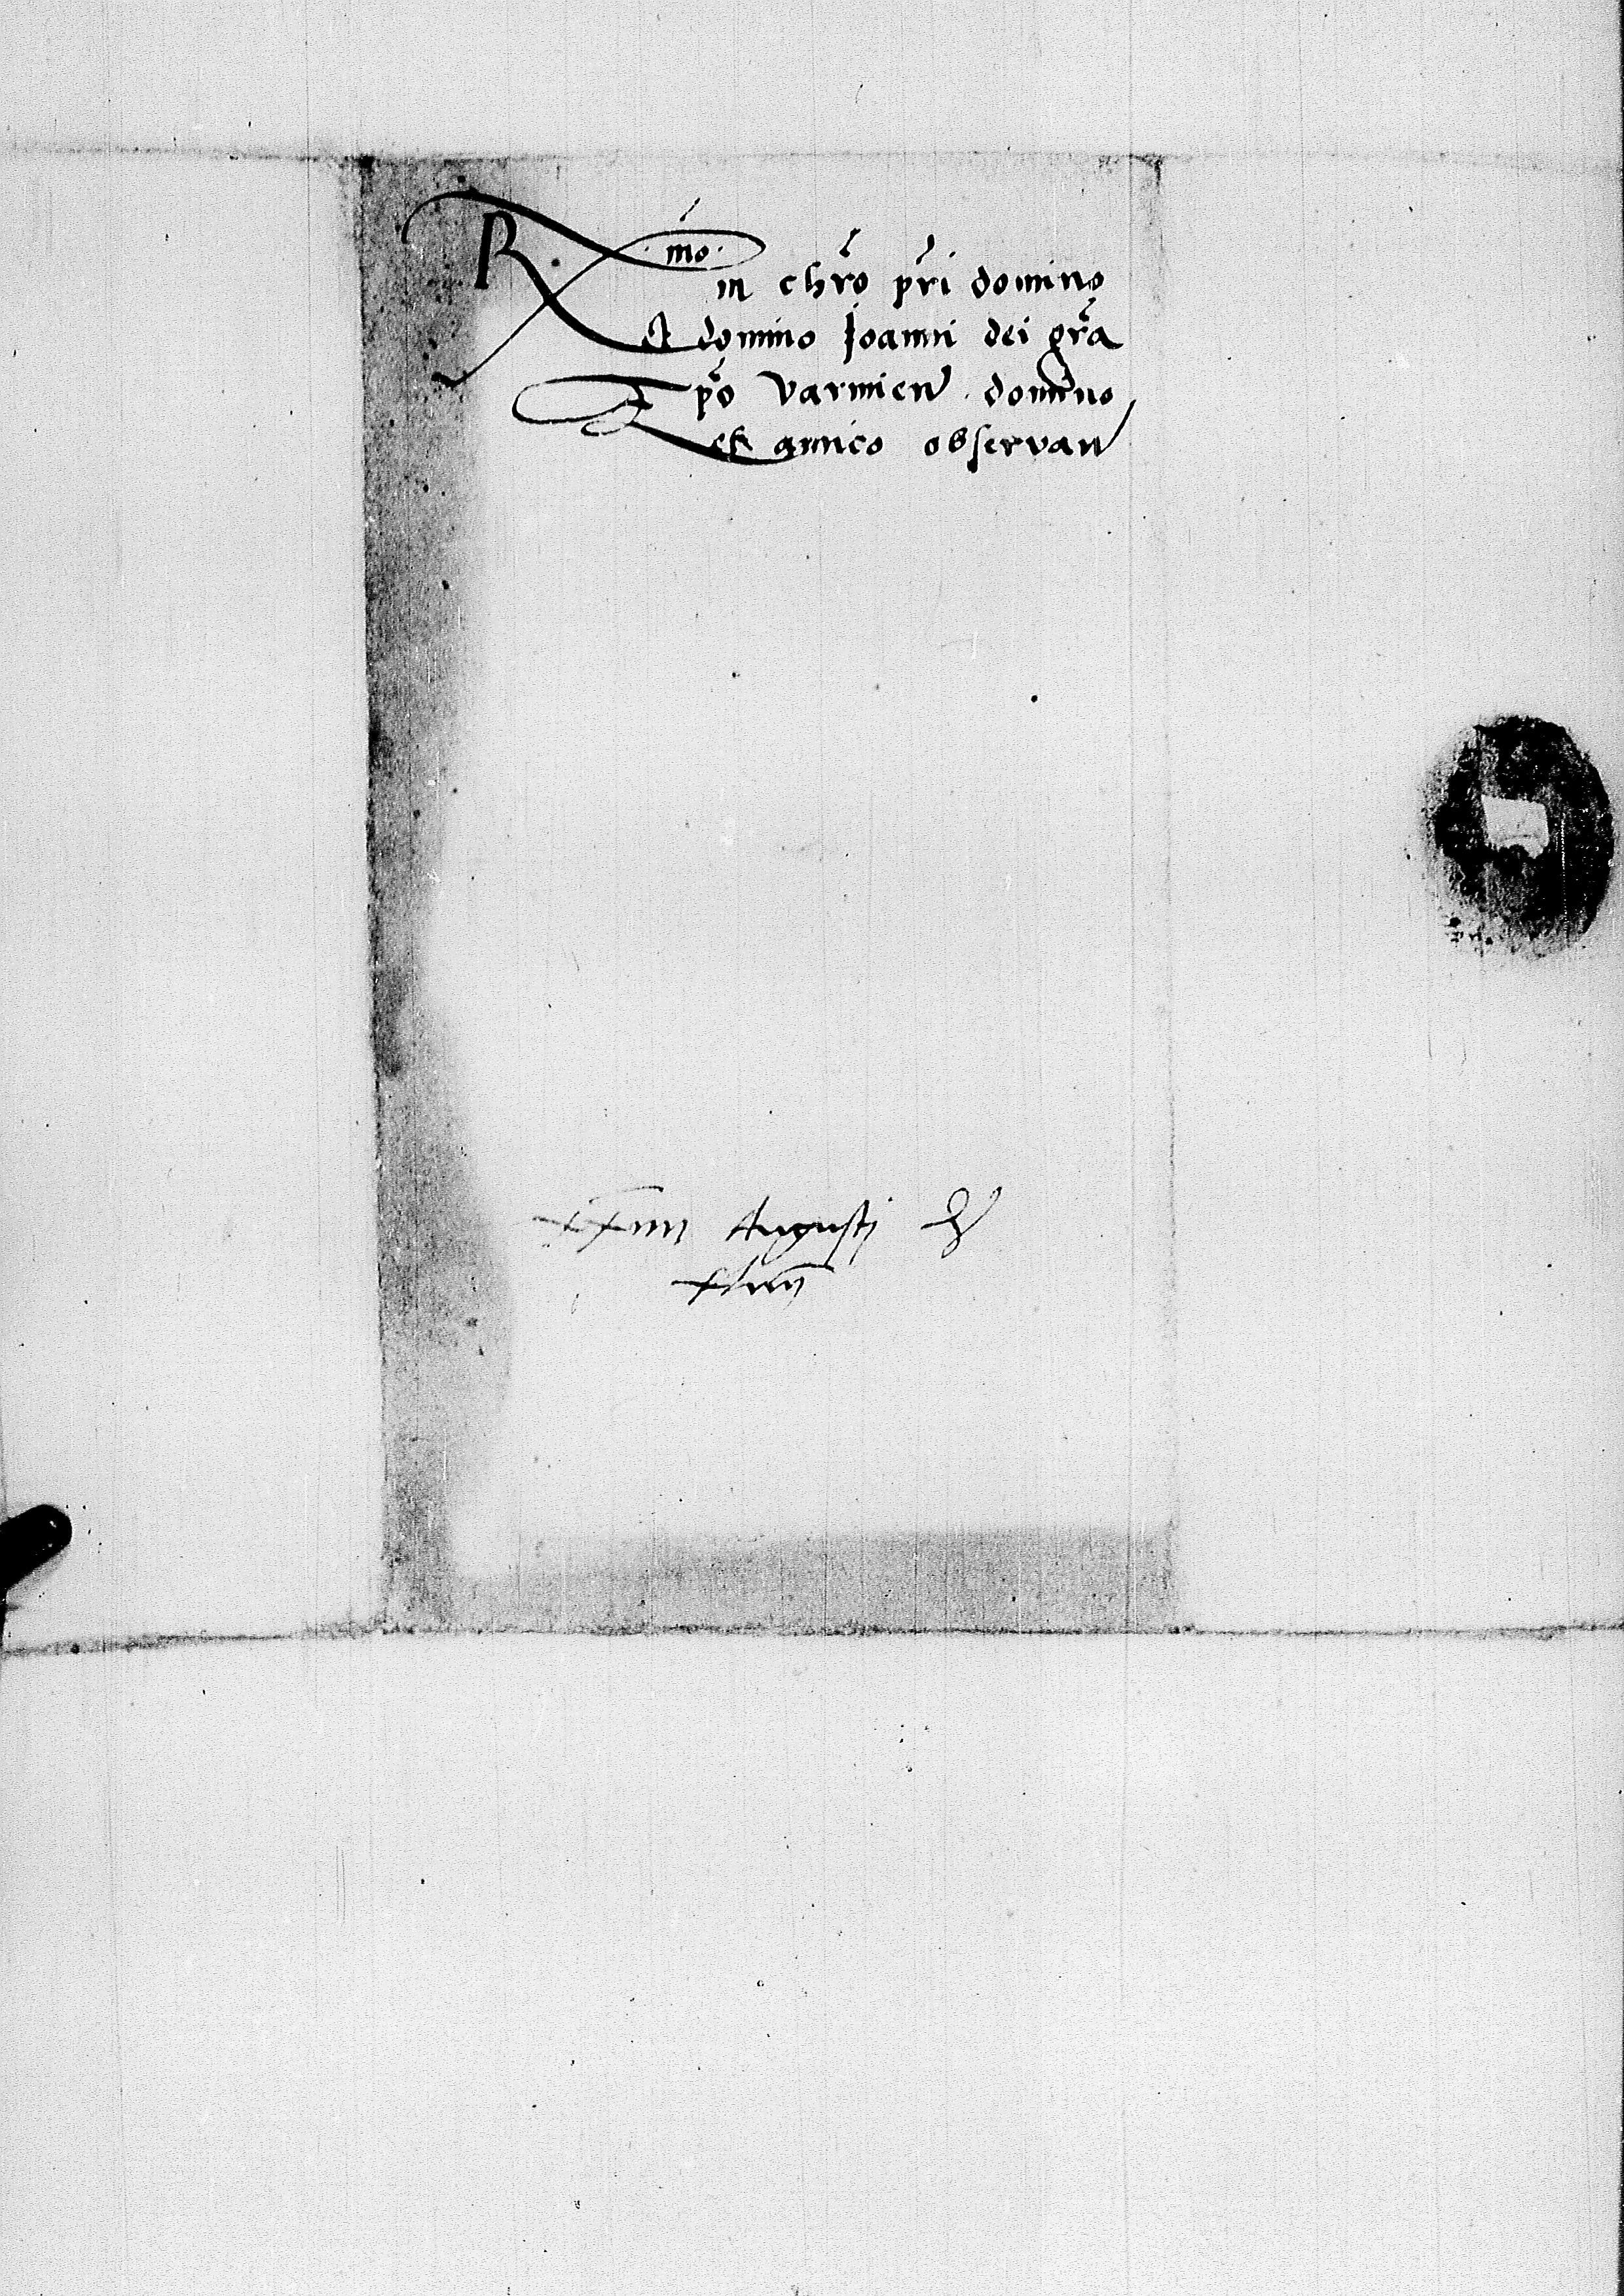 R. mo.
in chr̃o pr̃i domino
et domino Joanni dei gr̃a
Ep̃o Varmien̄ domino
et amico observan̄
xxiiii Augusti